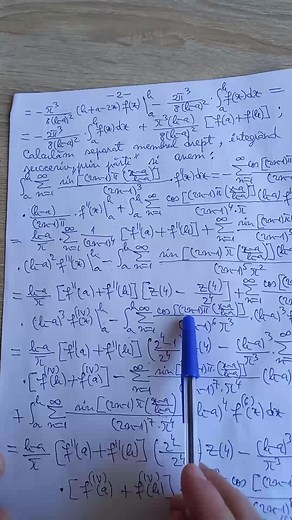 -2-
= -\frac{π^3}{8(b-a)^2} (b+a-2x) f(x) |_a^b - \frac{2π^3}{8(b-a)^2} · ∫_a^b f(x)dx =
= -\frac{2π^3}{8(b-a)^2} · ∫_a^b f(x)dx + \frac{π^3}{8(b-a)^2} [f(a)+f(b)] ;
Calculăm separat membrul drept, integrând
succesiv prin părți și avem:
∫_a^b ∑_{n=1}^∞ \frac{sin[(2n-1)π(\frac{x-a}{b-a})]}{(2n-1)^3} · f(x)dx = -∑_{n=1}^∞ \frac{cos[(2n-1)π
· \frac{(b-a)}{(2n-1)π} · f''(x) |_a^b + ∫_a^b ∑_{n=1}^∞ \frac{cos[(2n-1)π(\frac{x-a}{b-a})]}{(2n-1)^4·π}
= \frac{b-a}{π} · ∑_{n=1}^∞ \frac{1}{(2n-1)^4} [f''(a)+f''(b)] + ∑_{n=1}^∞
· (b-a)^2 f'''(x) |_a^b - ∫_a^b ∑_{n=1}^∞ \frac{sin[(2n-1)π(\frac{x-a}{b-a})]}{(2n-1)^5 π^2}
= \frac{b-a}{π} [f''(a)+f''(b)] [ζ(4) - \frac{ζ(4)}{2^4}] + ∑_{n=1}^∞ \frac{cos[(2n-1)
· (b-a)^3 f^{(IV)}(x) |_a^b - ∫_a^b ∑_{n=1}^∞ \frac{cos[(2n-1)π(\frac{x-a}{b-a})]}{(2n-1)^6 π^3} (b-a)^3 · f
= \frac{b-a}{π} [f''(a)+f''(b)] (\frac{2^4-1}{2^4}) ζ(4) - \frac{(b-a)^3}{π^3} ·
· [f^{(IV)}(a)+f^{(IV)}(b)] - ∑_{n=1}^∞ \frac{sin[(2n-1)π(\frac{x-a}{b-a})]}{(2n-1)^7·π^4}
+ ∫_a^b ∑_{n=1}^∞ \frac{sin[(2n-1)π(\frac{x-a}{b-a})]}{(2n-1)^7·π^4} (b-a)^4 · f^{(6)}(x)dx
= \frac{b-a}{π} [f''(a)+f''(b)] (\frac{2^4-1}{2^4}) ζ(4) - \frac{(b-a)^3
· [f^{(IV)}(a)+f^{(IV)}(b)]